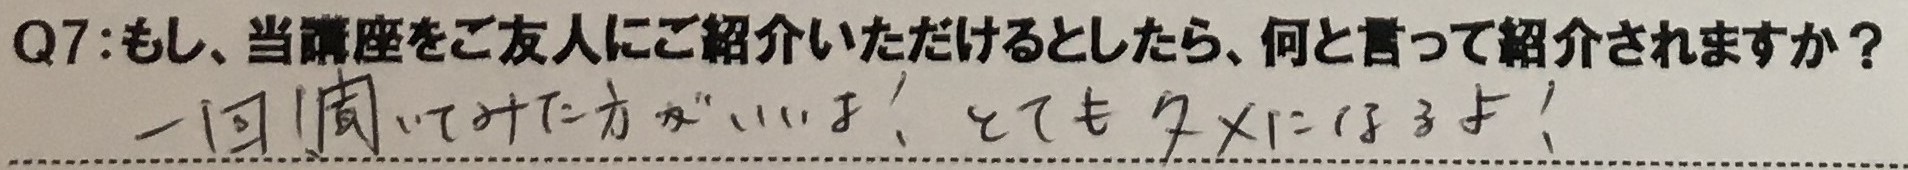 Q7:もし、当講座をご友人にご紹介いただけるとしたら、何と言って紹介されますか?
一回聞いてみた方がいいよ！とてもタメになるよ！